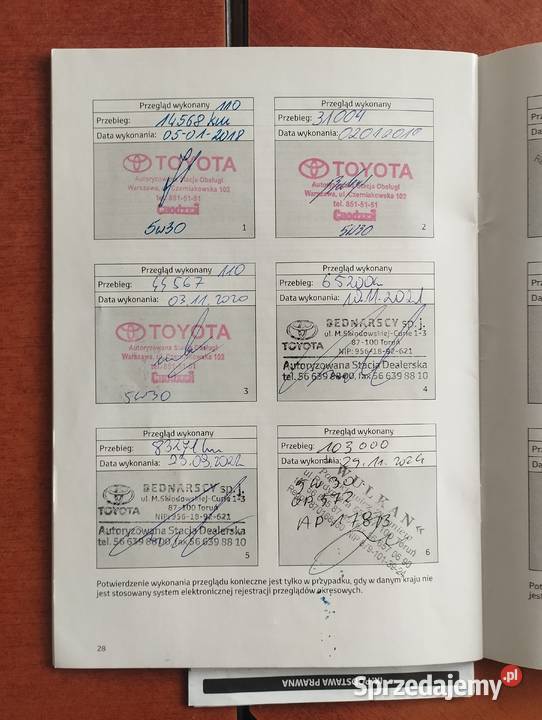 Przegląd wykonany 110
Przebieg: 14568 km
Data wykonania: 05-01-2018
TOYOTA
Autoryzowana Stacja Obsługi
Warszawa, ul. Czerniakowska 102
tel. 851-51-51
5W30
1
Przegląd wykonany 110
Przebieg: 31004
Data wykonania:
TOYOTA
Autoryzowana Stacja Obsługi
Warszawa, ul. Czerniakowska 102
tel. 851-51-51
5W30
2
Przegląd wykonany 110
Przebieg: 44567
Data wykonania: 03.11.2020
TOYOTA
Autoryzowana Stacja Obsługi
Warszawa, ul. Czerniakowska 102
5W30
3
Przegląd wykonany
Przebieg: 65200
Data wykonania: 10.11.2021
TOYOTA
BEDNARSCY sp.j.
ul. M.Skłodowskiej-Curie 1-3
87-100 Toruń
NIP: 956-18-92-621
Autoryzowana Stacja Dealerska
tel. 56 639 88 00, fax 56 639 88 10
4
Przegląd wykonany
Przebieg: 83271 km
Data wykonania: 23.09.2022
TOYOTA
BEDNARSCY sp.j.
ul. M.Skłodowskiej-Curie 1-3
87-100 Toruń
NIP: 956-18-92-621
Autoryzowana Stacja Dealerska
tel. 56 639 88 00, fax 56 639 88 10
5
Przegląd wykonany
Przebieg: 103 000
Data wykonania: 29.11.2024
WULKAN"
5W30
6
Potwierdzenie wykonania przeglądu konieczne jest tylko w przypadku, gdy w danym kraju nie
jest stosowany system elektronicznej rejestracji przeglądów okresowych.
28
PODSTAWA PRAWNA
Sprzedajemy.pl